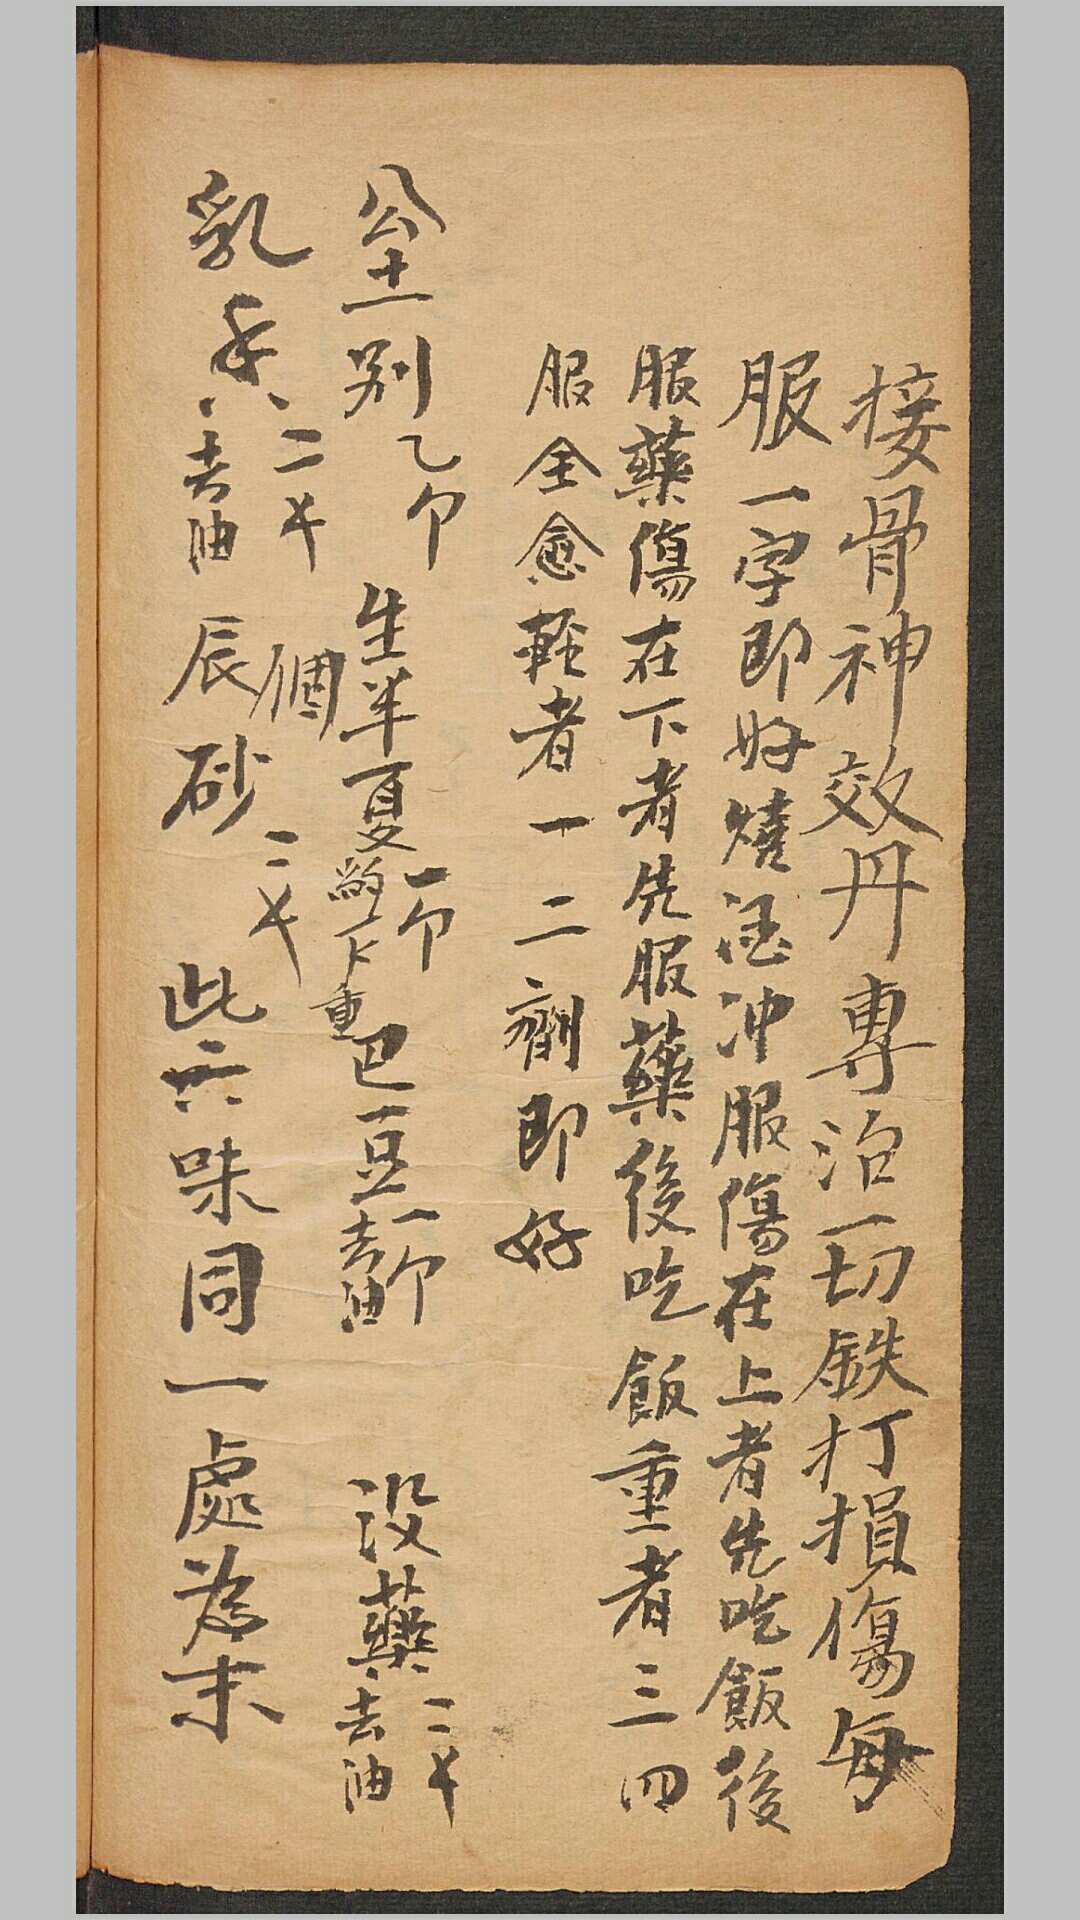 接骨神效丹專治一切鉄打損傷每
服一字即好燒酒冲服傷在上者先吃飯後
服藥傷在下者先服藥後吃飯重者三四
服全愈輕者一二劑即好
公土別乙个 生半夏一个 下重 巴豆一个去油 没藥二半去油
乳香二半去油 辰砂二半 個 此六味同一處為末